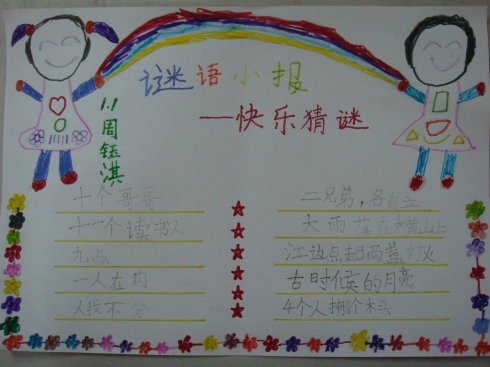 谜语小报
—快乐猜谜
1.1周钰淇
十个哥哥
十一个读书人
九点
一人在内
人我不分
二兄弟，各自立
大雨落在横山上
江边点起两盏灯火
古时候的月亮
4个人搬个木头